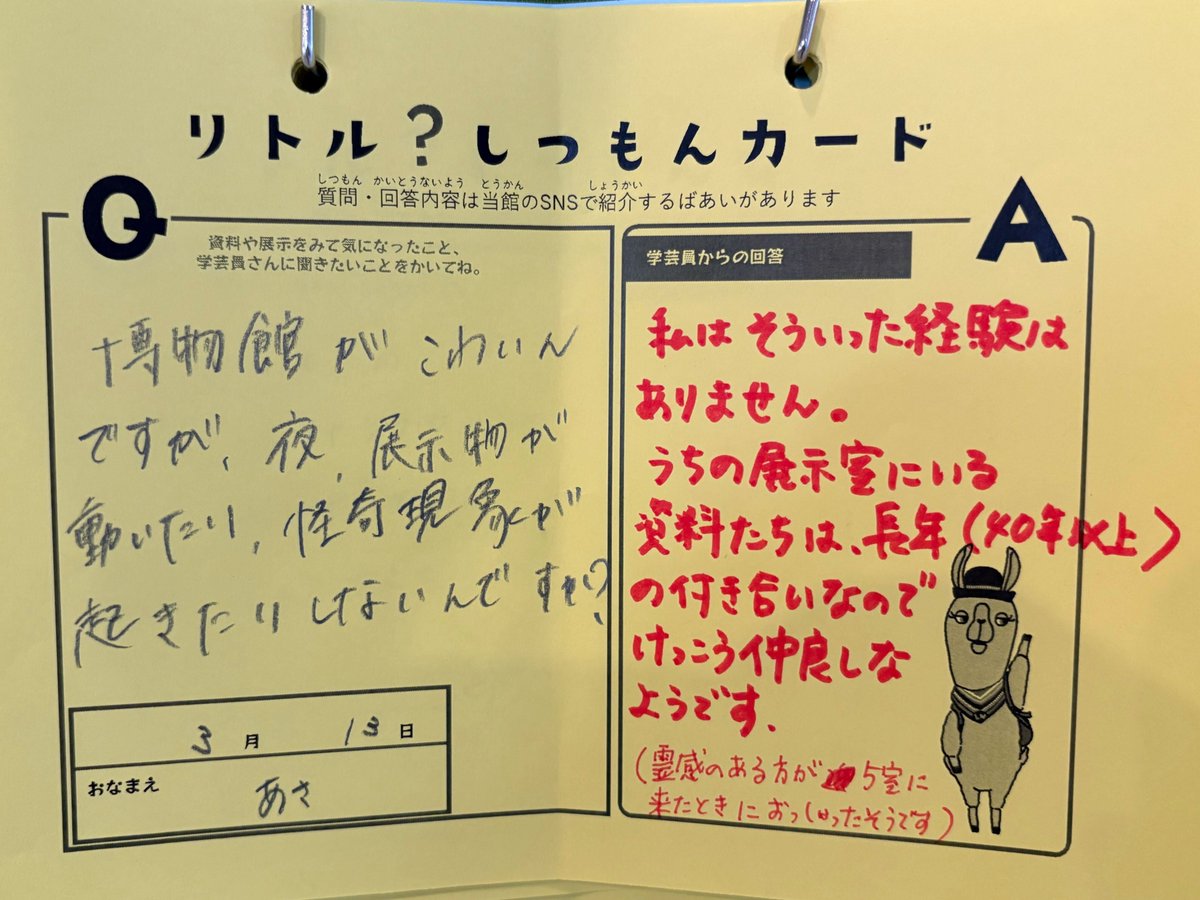 リトル?しつもんカード
しつもん かいとうないよう とうかん しょうかい
質問・回答内容は当館のSNSで紹介するばあいがあります
Q
資料や展示をみて気になったこと、
学芸員さんに聞きたいことをかいてね。
博物館がこわいん
ですが、夜、展示物が
動いたり、怪奇現象が
起きたりしないんですか?
3月13日
おなまえ
あさ
A
学芸員からの回答
私はそういった経験は
ありません。
うちの展示室にいる
資料たちは、長年(40年以上)
の付き合いなので
けっこう仲良しな
ようです。
(霊感のある方が5室に
来たときにおっしゃったそうです)